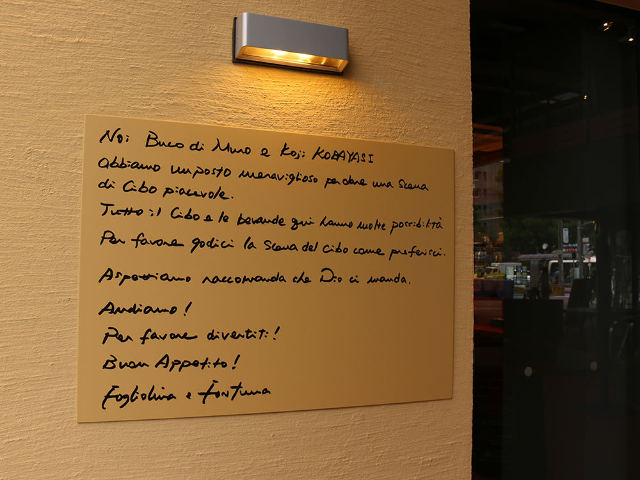 Noi Buco di Muro e Koji KOBAYASI
Abbiamo un posto meraviglioso per dare una scena
di Cibo piacevole.
Tutto il Cibo e le bevande qui hanno molte possibilità
Per favore godici la scena del cibo come preferisci.
Aspettiamo raccomanda che Dio ci manda.
Andiamo!
Per favore divertiti!
Buon Appetito!
Fogliolina e Fortuna